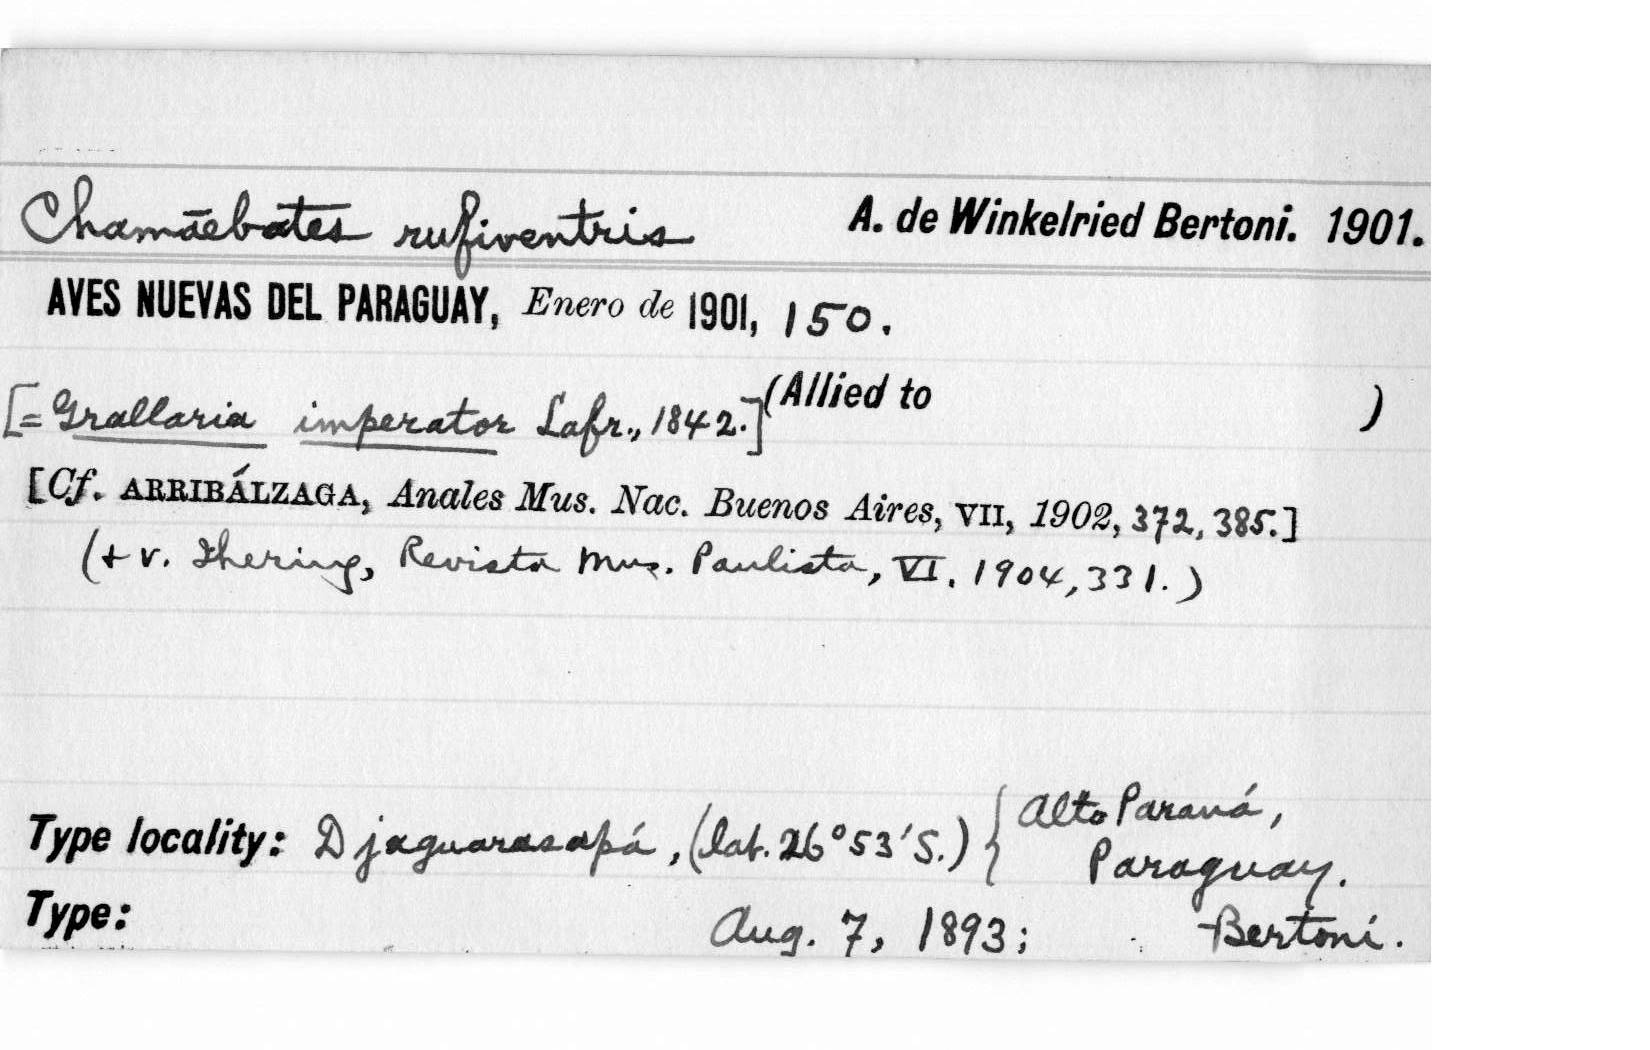 Chamāebates rufiventris A. de Winkelried Bertoni. 1901.
AVES NUEVAS DEL PARAGUAY, Enero de 1901, 150.
[= Grallaria imperator Lafr., 1842.] (Allied to )
[Cf. ARRIBÁLZAGA, Anales Mus. Nac. Buenos Aires, VII, 1902, 372, 385.]
(+ v. Ihering, Revista Mus. Paulista, VI, 1904, 331.)
Type locality: Djaguarasapá, (lat. 26°53'S.) { Alto Paraná,
Paraguay.
Type: Aug. 7, 1893; Bertoni.